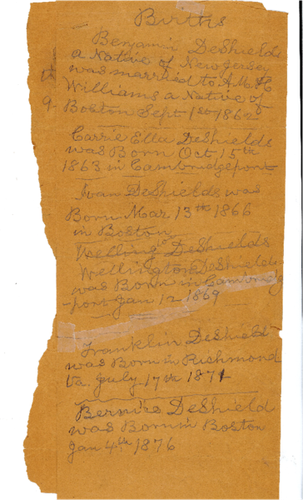 Births
Benjamin DeShields
a Native of New Jersey
was married to A.M.H
Williams a Native of
Boston Sept 1st 1862
Carrie Ella DeShields
was Born Oct 15th
1863 in Cambridgeport
Ivan DeShields was
Born Mar 13th 1866
in Boston
Welling DeShields
Wellington DeShields
was Born in Cambridg
-port Jan 12 1869
Franklin DeShield
was Born in Richmond
Va. July 17th 1871
Bernice DeShield
was Born in Boston
Jan 4th 1876